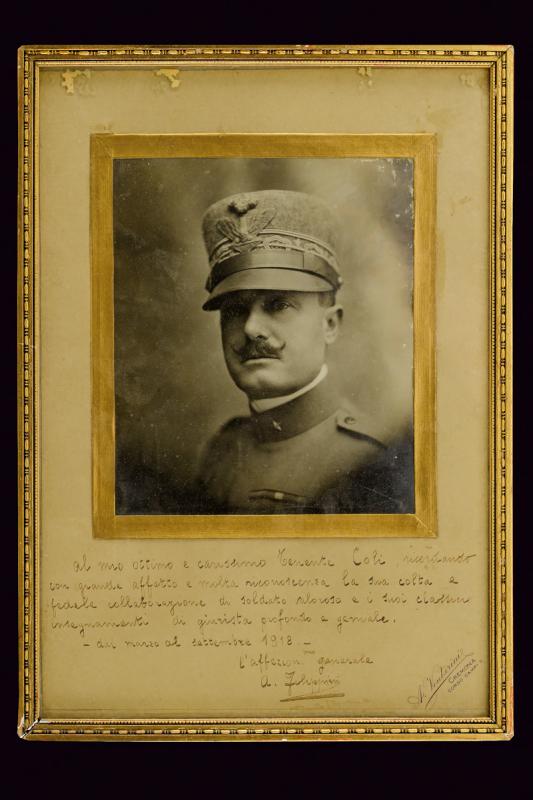 al mio ottimo e carissimo Tenente Coli, ricordando
con grande affetto e molta riconoscenza la sua colta e
fedele collaborazione di soldato valoroso e i suoi classici
insegnamenti di giurista profondo e geniale.
- dal marzo al settembre 1918. -
l'affezion.mo generale
A. Filippini
CREMONA
CORSO